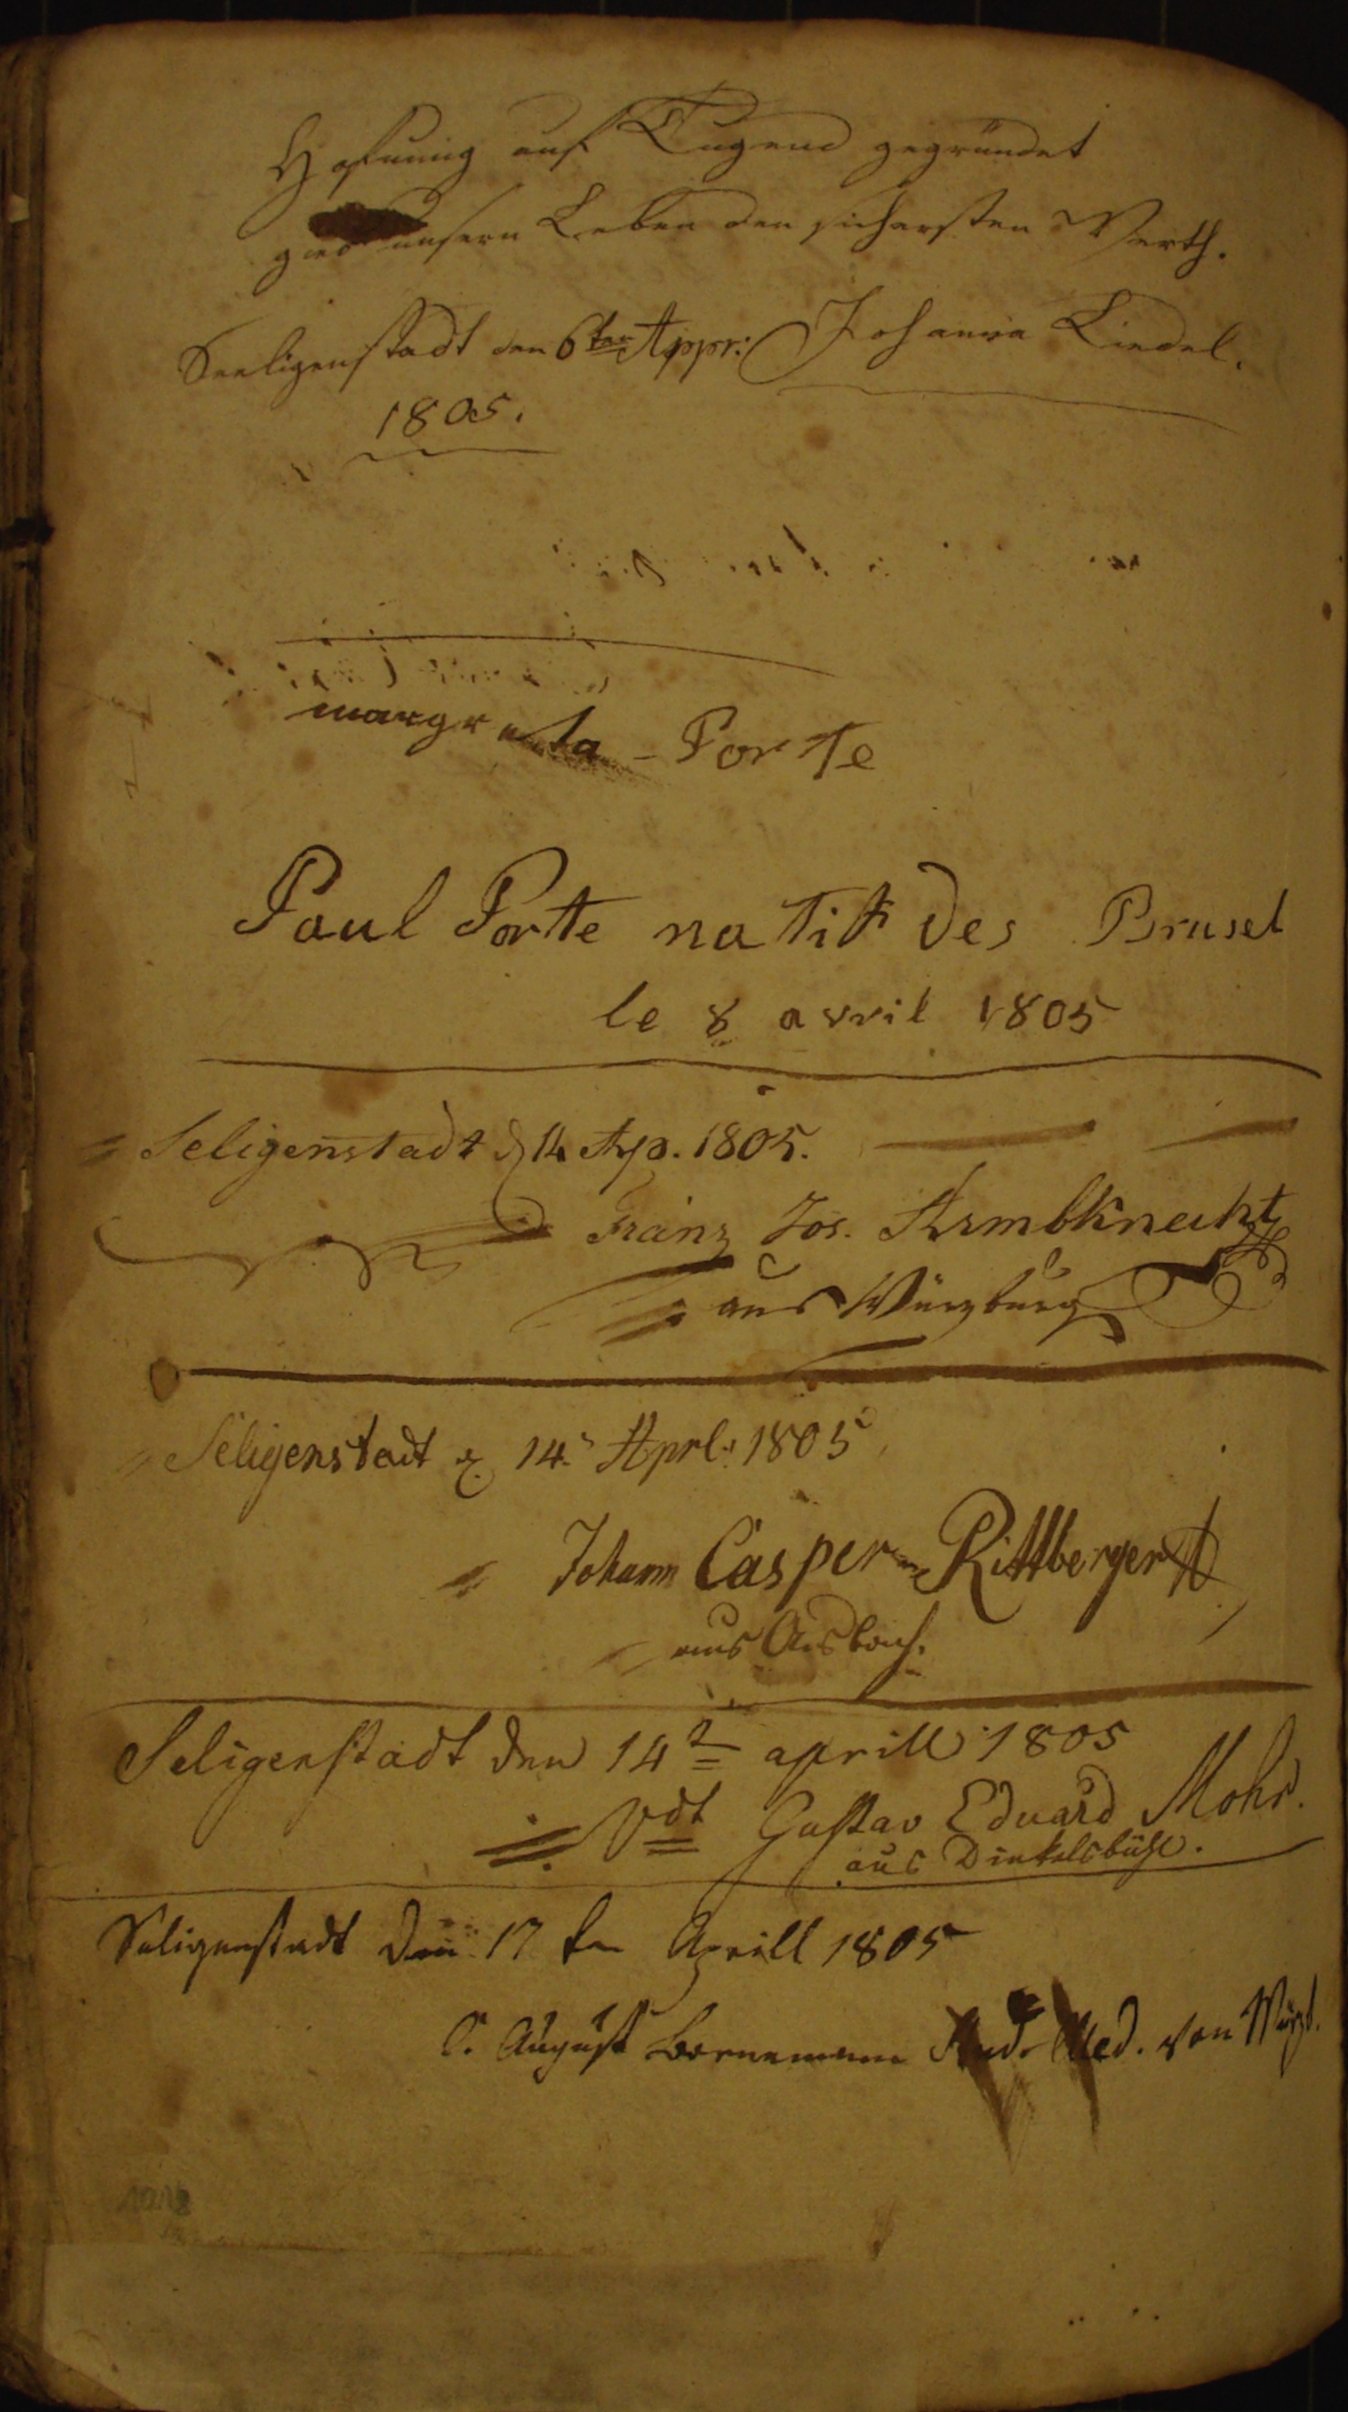 Hofnung auf Tugend gegründet
unsern Leben den sichersten Werth.
Seeligenstadt den 6ten Appr: Johanna Liedel.
1805.
margreta - Porte
Paul Porte natif des Brusel
le 8 avril 1805
Seligenstadt d 14 Ap. 1805.
Franz Jos. Armbknecht
aus Würzburg
Seligenstadt 14. Aprl. 1805
Johann Casper Rittberger
aus Ansbach.
Seligenstadt den 14 aprill 1805
Vdt Gustav Eduard Mohr.
aus Dinkelsbühl.
Seligenstadt den 17 ten Aprill 1805
C. August Bornemann Stud. Med. von Würzb.